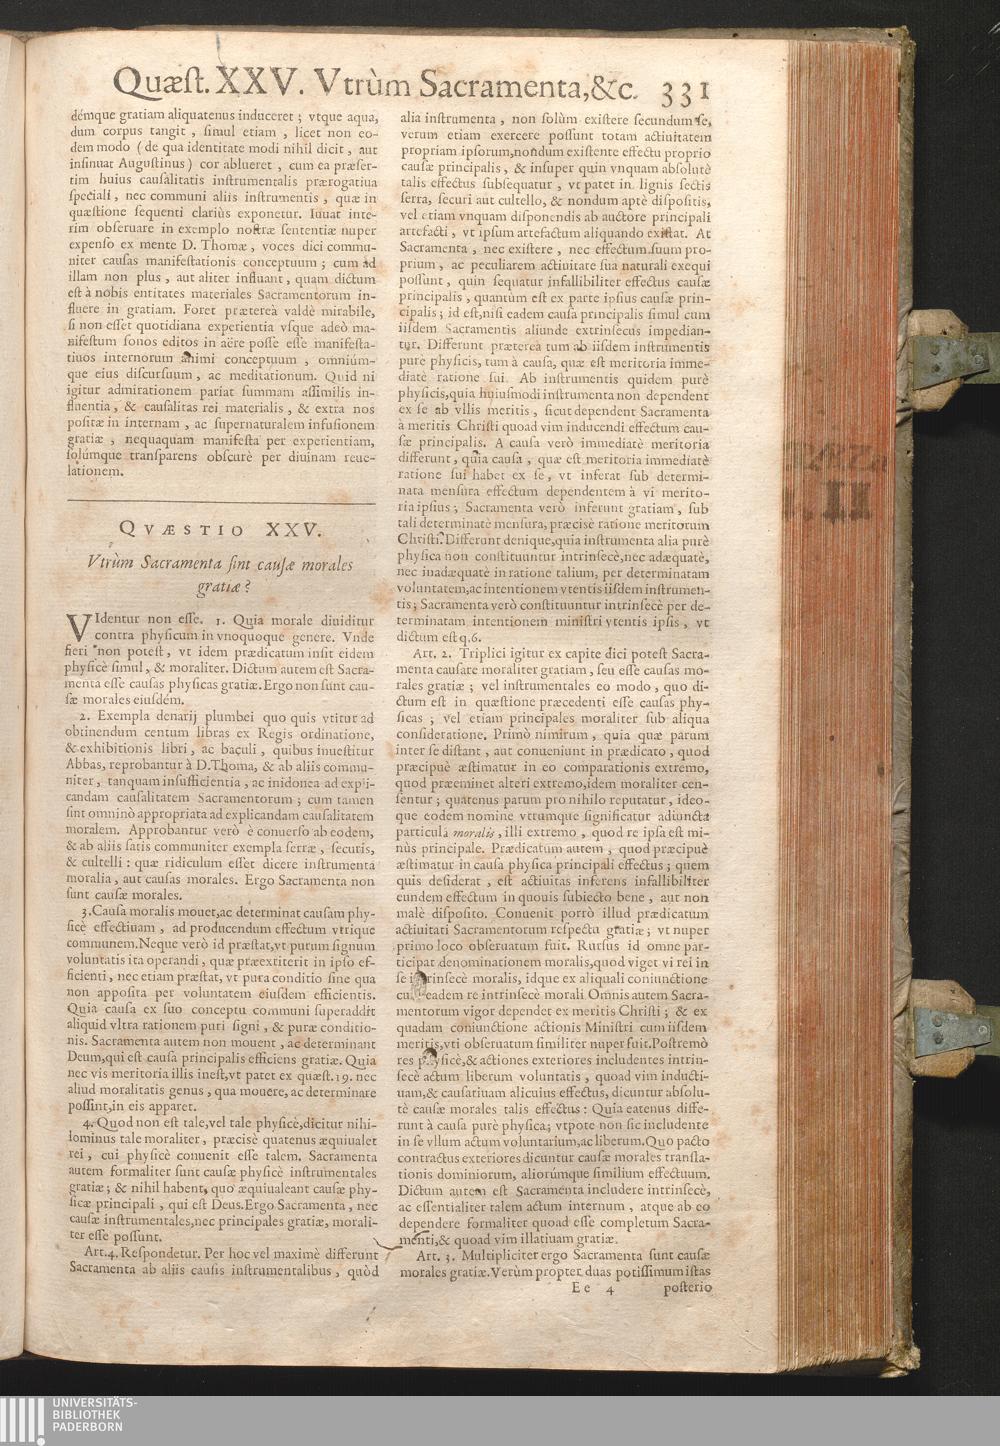 Quæſt. XXV. Vtrùm Sacramenta,&c. 331
démque gratiam aliquatenus induceret ; vtque aqua,
dum corpus tangit , ſimul etiam , licet non eo-
dem modo ( de qua identitate modi nihil dicit , aut
inſinuat Auguſtinus ) cor ablueret , cum ea præſer-
tim huius cauſalitatis inſtrumentalis prærogatiua
ſpeciali , nec communi aliis inſtrumentis , quæ in
quæſtione ſequenti clariùs exponetur. Iuuat inte-
rim obſeruare in exemplo noſtræ ſententiæ nuper
expenſo ex mente D. Thomæ , voces dici commu-
niter cauſas manifeſtationis conceptuum ; cum ad
illam non plus , aut aliter influant , quam dictum
eſt à nobis entitates materiales Sacramentorum in-
fluere in gratiam. Foret prætereà valdè mirabile,
ſi non eſſet quotidiana experientia vſque adeò ma-
nifeſtum ſonos editos in aëre poſſe eſſe manifeſta-
tiuos internorum animi conceptuum , omniúm-
que eius diſcurſuum , ac meditationum. Quid ni
igitur admirationem pariat ſummam aſſimilis in-
fluentia , & cauſalitas rei materialis , & extra nos
poſitæ in internam , ac ſupernaturalem infuſionem
gratiæ , nequaquam manifeſta per experientiam,
ſolúmque tranſparens obſcurè per diuinam reue-
lationem.
QVÆSTIO XXV.
Vtrùm Sacramenta ſint cauſæ morales
gratiæ?
VIdentur non eſſe. 1. Quia morale diuiditur
contra phyſicum in vnoquoque genere. Vnde
fieri non poteſt , vt idem prædicatum inſit eidem
phyſicè ſimul , & moraliter. Dictum autem eſt Sacra-
menta eſſe cauſas phyſicas gratiæ. Ergo non ſunt cau-
ſæ morales eiuſdém.
2. Exempla denarij plumbei quo quis vtitur ad
obtinendum centum libras ex Regis ordinatione,
& exhibitionis libri , ac baculi , quibus inueſtitur
Abbas, reprobantur à D.Thoma, & ab aliis commu-
niter , tanquam inſufficientia , ac inidonea ad expli-
candam cauſalitatem Sacramentorum ; cum tamen
ſint omninò appropriata ad explicandam cauſalitatem
moralem. Approbantur verò è conuerſo ab eodem,
& ab aliis ſatis communiter exempla ſerræ , ſecuris,
& cultelli : quæ ridiculum eſſet dicere inſtrumenta
moralia , aut cauſas morales. Ergo Sacramenta non
ſunt cauſæ morales.
3.Cauſa moralis mouet,ac determinat cauſam phy-
ſicè effectiuam , ad producendum effectum vtrique
communem.Neque verò id præſtat,vt purum ſignum
voluntatis ita operandi , quæ præextiterit in ipſo ef-
ficienti , nec etiam præſtat, vt pura conditio ſine qua
non appoſita per voluntatem eiuſdem efficientis.
Quia cauſa ex ſuo conceptu communi ſuperaddit
aliquid vltra rationem puri ſigni , & puræ conditio-
nis. Sacramenta autem non mouent , ac determinant
Deum,qui eſt cauſa principalis efficiens gratiæ. Quia
nec vis meritoria illis ineſt,vt patet ex quæſt.19. nec
aliud moralitatis genus , qua mouere, ac determinare
poſſint,in eis apparet.
4. Quod non eſt tale,vel tale phyſicè,dicitur nihi-
lominus tale moraliter , præcisè quatenus æquiualet
rei , cui phyſicè conuenit eſſe talem. Sacramenta
autem formaliter ſunt cauſæ phyſicè inſtrumentales
gratiæ ; & nihil habent, quo æquiualeant cauſæ phy-
ſicæ principali , qui eſt Deus.Ergo Sacramenta , nec
cauſæ inſtrumentales,nec principales gratiæ, morali-
ter eſſe poſſunt.
Art.4. Reſpondetur. Per hoc vel maximè differunt
Sacramenta ab aliis cauſis inſtrumentalibus , quòd
alia inſtrumenta , non ſolùm exiſtere ſecundum ſe,
verum etiam exercere poſſunt totam actiuitatem
propriam ipſorum,nondum exiſtente effectu proprio
cauſæ principalis , & inſuper quin vnquam abſolutè
talis effectus ſubſequatur , vt patet in lignis ſectis
ſerra, ſecuri aut cultello, & nondum aptè diſpoſitis,
vel etiam vnquam diſponendis ab auctore principali
artefacti , vt ipſum artefactum aliquando exiſtat. At
Sacramenta , nec exiſtere , nec effectum ſuum pro-
prium , ac peculiarem actiuitate ſua naturali exequi
poſſunt , quin ſequatur infallibiliter effectus cauſæ
principalis , quantùm eſt ex parte ipſius cauſæ prin-
cipalis ; id eſt,niſi eadem cauſa principalis ſimul cum
iiſdem Sacramentis aliunde extrinſecùs impedian-
tur. Differunt præterea tum ab iiſdem inſtrumentis
purè phyſicis, tum à cauſa, quæ eſt meritoria imme-
diatè ratione ſui. Ab inſtrumentis quidem purè
phyſicis,quia huiuſmodi inſtrumenta non dependent
ex ſe ab vllis meritis , ſicut dependent Sacramenta
à meritis Chriſti quoad vim inducendi effectum cau-
ſæ principalis. A cauſa verò immediatè meritoria
differunt , quia cauſa , quæ eſt meritoria immediatè
ratione ſui habet ex ſe , vt inferat ſub determi-
nata menſura effectum dependentem à vi merito-
ria ipſius ; Sacramenta verò inferunt gratiam , ſub
tali determinatè menſura, præcisè ratione meritorum
Chriſti. Differunt denique,quia inſtrumenta alia purè
phyſica non conſtituuntur intrinſecè,nec adæquatè,
nec inadæquatè in ratione talium, per determinatam
voluntatem,ac intentionem vtentis iiſdem inſtrumen-
tis ; Sacramenta verò conſtituuntur intrinſecè per de-
terminatam intentionem miniſtri vtentis ipſis , vt
dictum eſt q.6.
Art. 2. Triplici igitur ex capite dici poteſt Sacra-
menta cauſare moraliter gratiam , ſeu eſſe cauſas mo-
rales gratiæ ; vel inſtrumentales eo modo , quo di-
ctum eſt in quæſtione præcedenti eſſe cauſas phy-
ſicas ; vel etiam principales moraliter ſub aliqua
conſideratione. Primò nimirum , quia quæ parum
inter ſe diſtant , aut conueniunt in prædicato , quod
præcipuè æſtimatur in eo comparationis extremo,
quod præeminet alteri extremo,idem moraliter cen-
ſentur ; quatenus parum pro nihilo reputatur , ideo-
que eodem nomine vtrumque ſignificatur adiuncta
particula moralis , illi extremo , quod re ipſa eſt mi-
nùs principale. Prædicatum autem , quod præcipuè
æſtimatur in cauſa phyſica principali effectus ; quem
quis deſiderat , eſt actiuitas inferens infallibiliter
eundem effectum in quouis ſubiecto bene , aut non
malè diſpoſito. Conuenit porrò illud prædicatum
actiuitati Sacramentorum reſpectu gratiæ ; vt nuper
primo loco obſeruatum fuit. Rurſus id omne par-
ticipat denominationem moralis,quod viget vi rei in
ſe intrinſecè moralis, idque ex aliquali coniunctione
cum eadem re intrinſecè morali Omnis autem Sacra-
mentorum vigor dependet ex meritis Chriſti ; & ex
quadam coniunctione actionis Miniſtri cum iiſdem
meritis,vti obſeruatum ſimiliter nuper fuit.Poſtremò
res phyſicè,& actiones exteriores includentes intrin-
ſecè actum liberum voluntatis , quoad vim inducti-
uam,& cauſatiuam alicuius effectus, dicuntur abſolu-
tè cauſæ morales talis effectus : Quia eatenus diffe-
runt à cauſa purè phyſica; vtpote non ſic includente
in ſe vllum actum voluntarium,ac liberum.Quo pacto
contractus exteriores dicuntur cauſæ morales tranſla-
tionis dominiorum, aliorúmque ſimilium effectuum.
Dictum autem eſt Sacramenta includere intrinſecè,
ac eſſentialiter talem actum internum , atque ab eo
dependere formaliter quoad eſſe completum Sacra-
menti,& quoad vim illatiuam gratiæ.
Art. 3. Multipliciter ergo Sacramenta ſunt cauſæ
morales gratiæ.Verùm propter duas potiſſimum iſtas
Ee 4 poſterio
UNIVERSITÄTS-
BIBLIOTHEK
PADERBORN